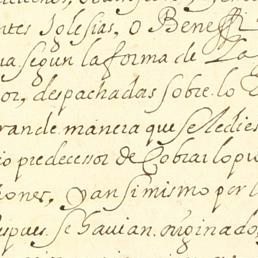 ntes Iglesias, o Benef
ua segun la forma de La
or, despachadas sobre lo
grande manera que se le dies
io predecesor de Cobrar lo pu
iones, y ansi mismo por l
spues se hauian originado,